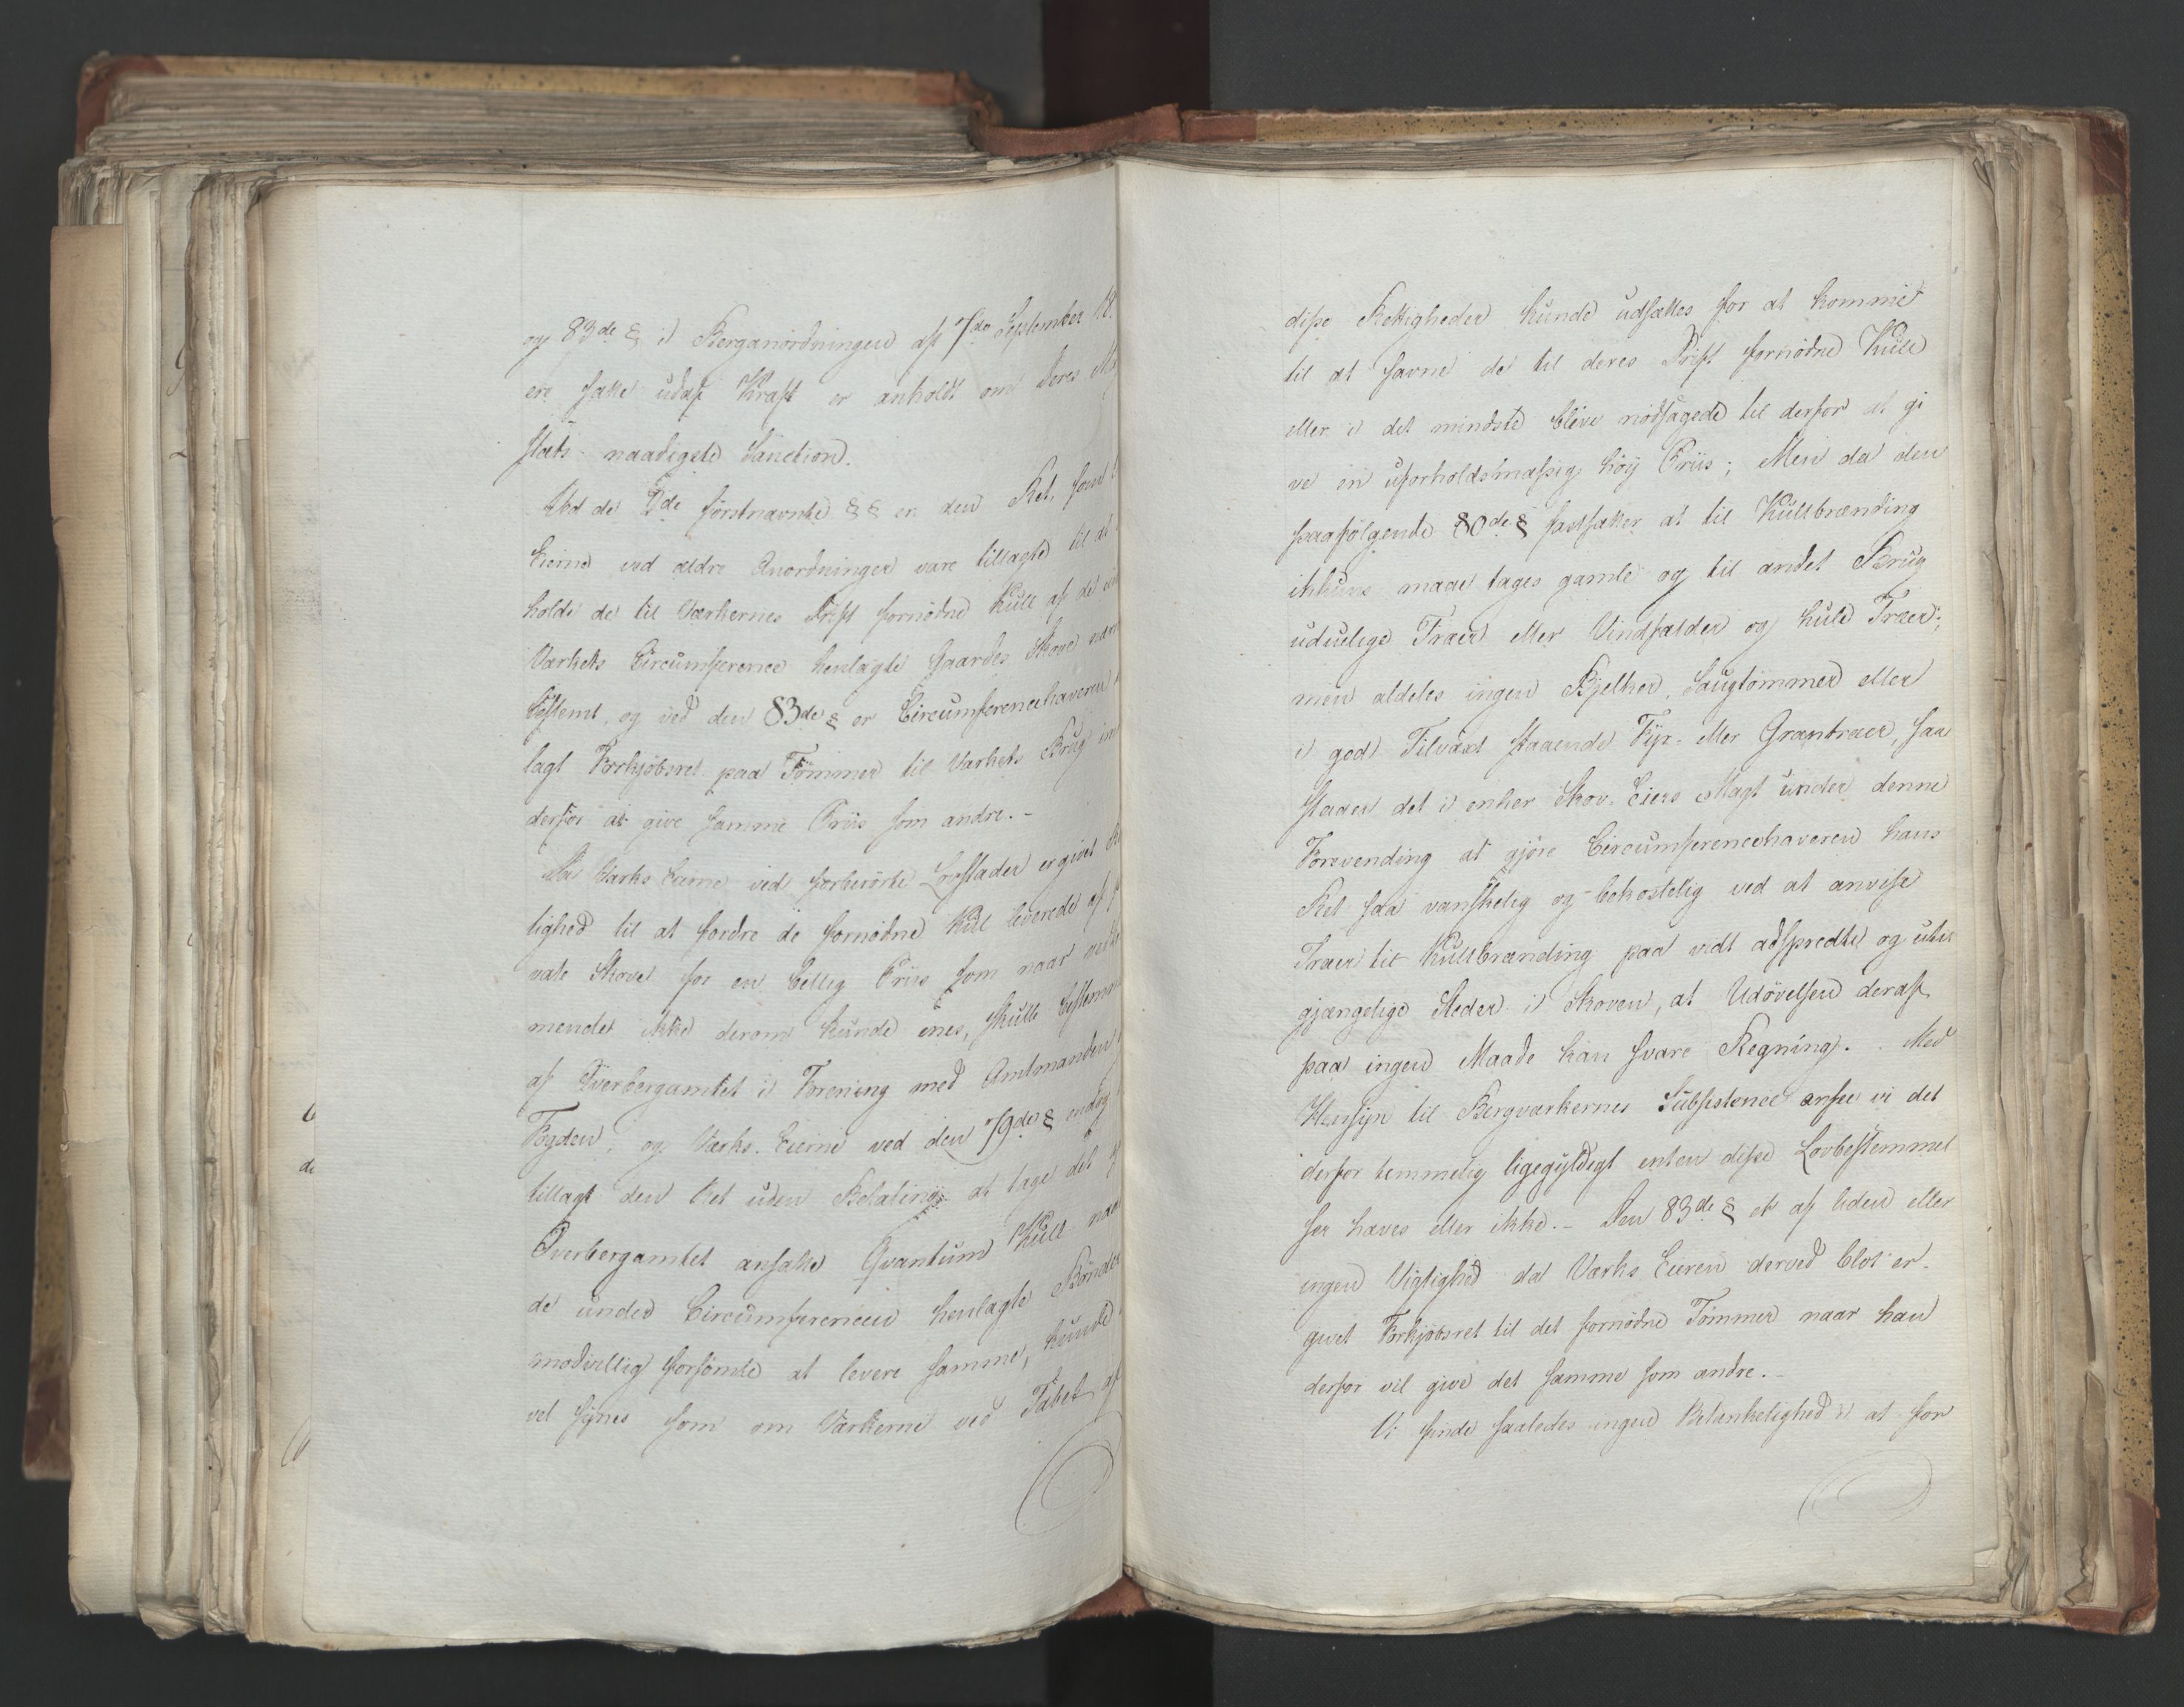 og 83de § i Berganordningen af 7de September 18
ere satte udaf Kraft er anholdt om Deres Ma
stæts naadigste Sanction.
Ved de 2de förstnævnte §§ er den Ret, som
Eierne ved ældre Anordninger vare tillagte til at
holde de til Værkernes Drift fornödne Kull af de
Værkets Circumference henlagte Gaardes Skove nær
bestemt, og ved den 83de § er Circumferencehaveren
lagt Forkjöbsret paa Tömmer til Værkets Brug
derfor at give samme Priis som andre. -
Da Værks Eierne ved forberörte Lovstæder er givet
lighed til at fordre de fornödne Kull leverede af
vate Skove for en billig Priis som naar
mendet ikke derom kunde enes, skulle bestemm
af Overbergamtet i Forening med Amtmanden
Fogden, og Værks Eierne ved den 79de § endog
tillagt den Ret uden Betaling at tage det
Overbergamtet ansatte Qvantum Kull naar
de under Circumferencen henlagte Bönder
modvillig forsömte at levere samme, kunde
vel synes som om Værkerne ved Tabet af
disse Rettigheder kunde udsættes for at komme
til at savne de til deres Drift fornödne Kull
eller i det mindste blive nödsagede til derfor at gi
ve en uforholdsmæssig höy Priis; Men da den
paafölgende 80de § fastsætter at til Kullbrænding
ikkuns maae tages gamle og til andet Brug
uduelige Træer eller Vindfælder og hule Træer,
men aldeles ingen Bjelker, Saugtömmer eller
i god Tilvæxt staaende Fyr- eller Grantræer, saa
staaer det i enhver Skov-Eiers Magt under denne
Forevending at gjöre Circumferencehaveren hans
Ret saa vanskelig og bekostelig ved at anvise
Træer til Kullbrænding paa vidt adspredte og util
gjængelige Steder i Skoven, at Udövelsen deraf
paa ingen Maade kan svare Regning. Med
Hensyn til Bergværkernes Subsistence ansee vi det
derfor temmelig ligegyldigt enten disse Lovbestemmel
ser haves eller ikke. - Den 83de § er af liden eller
ingen Vigtighed da Værks Eieren derved blot er
givet Forkjöbsret til det fornödne Tömmer naar han
derfor vil give det samme som andre. -
Vi finde saaledes ingen Betænkelighed i at for